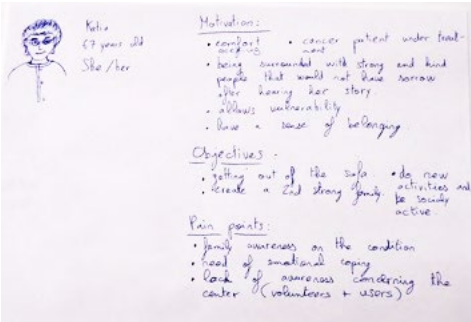 Katia
67 years old
She/her
Motivation:
• comfort seeking • cancer patient under treatment
• being surrounded with strong and kind
people that would not have sorrow
after hearing her story.
• allows vulnerability
• have a sense of belonging.
Objectives:
• getting out of the sofa. • do new
• create a 2nd strong family. activities and
be socially
active
Pain points:
• family awareness on the condition
• need of emotional coping
• lack of awareness concerning the
center (volunteers + users)